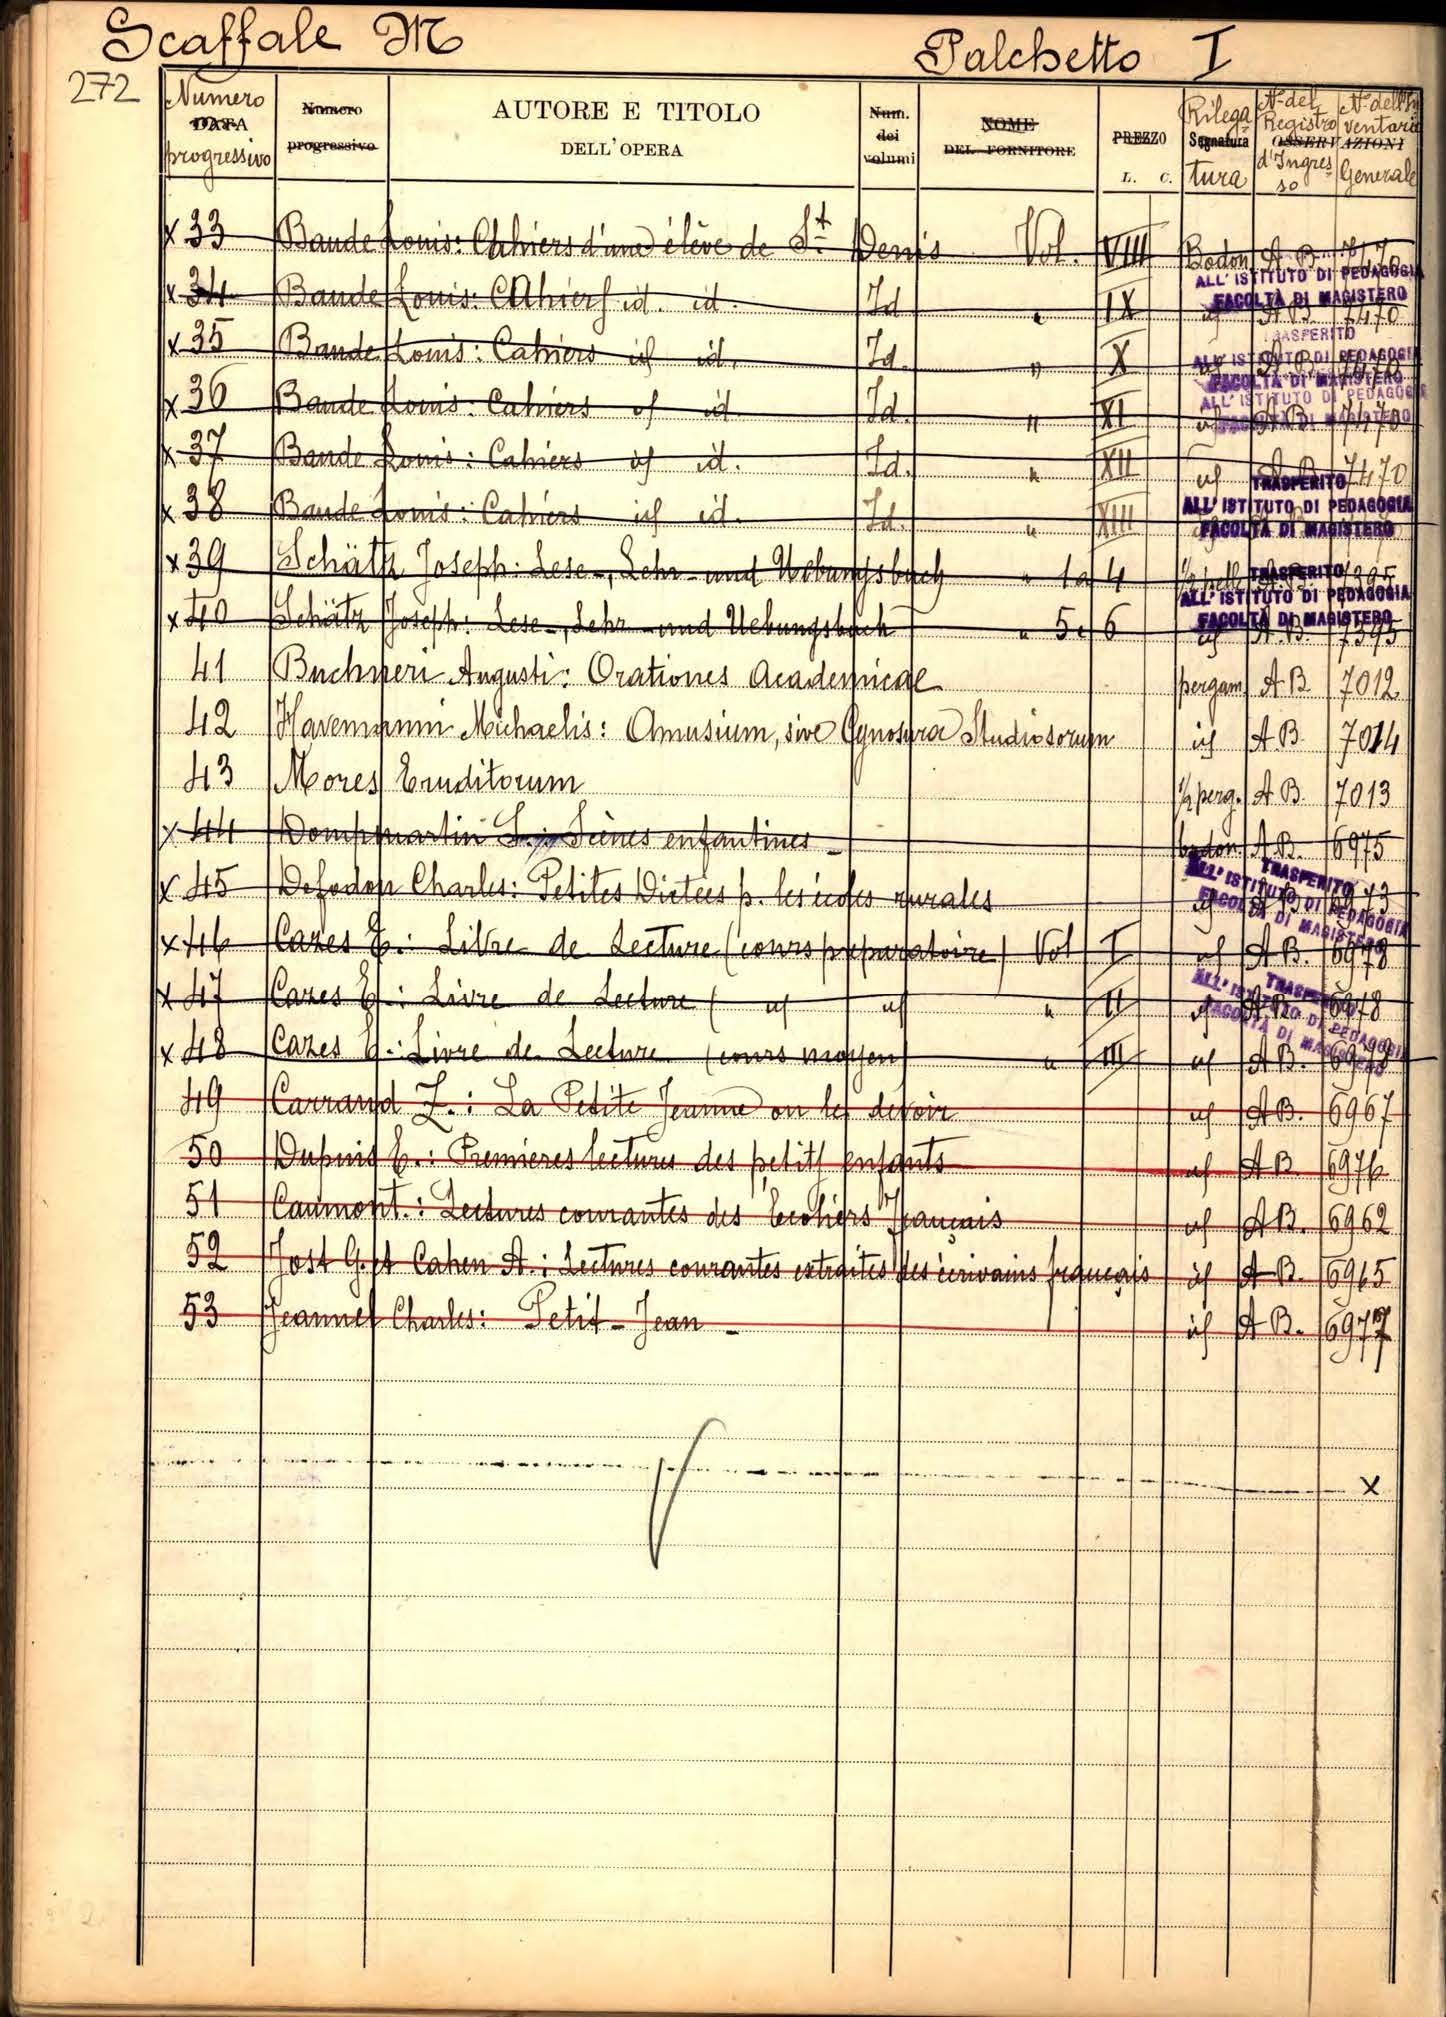 Scaffale M Palchetto I
272
Numero DATA progressivo
Numero progressivo
AUTORE E TITOLO DELL'OPERA
Num. dei volumi
NOME DEL FORNITORE
PREZZO L. C.
Rilega Segnatura tura
N. del Registro d'Ingresso
OSSERVAZIONI
N. dell'Inventario Generale
x 33 Baude Louis: Cahiers d'une élève de St Denis Vol. VIII Bodon A B 7470
ALL'ISTITUTO DI PEDAGOGIA
FACOLTÀ DI MAGISTERO
x 34 Baude Louis: Cahiers id. id. Id " IX id A B 7470
TRASFERITO
x 35 Baude Louis: Cahiers id id. Id. " X id A B 7470
ALL'ISTITUTO DI PEDAGOGIA
FACOLTÀ DI MAGISTERO
ALL'ISTITUTO DI PEDAGOGIA
x 36 Baude Louis: Cahiers id id Id. " XI id A B 7470
FACOLTÀ DI MAGISTERO
x 37 Baude Louis: Cahiers id id. Id. " XII id A B 7470
TRASFERITO
ALL'ISTITUTO DI PEDAGOGIA
x 38 Baude Louis: Cahiers id id. Id. " XIII
FACOLTÀ DI MAGISTERO
x 39 Schätz Joseph: Lese-, Lehr- und Uebungsbuch " 1 a 4 1/2 pelle A.B. 7395
TRASFERITO
ALL'ISTITUTO DI PEDAGOGIA
FACOLTÀ DI MAGISTERO
x 40 Schätz Joseph: Lese-, Lehr- und Uebungsbuch " 5 e 6 id A.B. 7395
41 Buchneri Augusti: Orationes Academicae pergam. A B 7012
42 Havemanni Michaelis: Amusium, sive Cynosura Studiosorum id A B 7014
43 Mores Eruditorum 1/2 perg. A B. 7013
x 44 Dompmartin S.: Scènes enfantines - bodon A.B. 6975
x 45 Defodon Charles: Petites Dictées p. les écoles rurales id A B 6973
TRASFERITO
ALL'ISTITUTO DI PEDAGOGIA
FACOLTÀ DI MAGISTERO
x 46 Cazes E.: Livre de Lecture (cours préparatoire) Vol I id A B. 6978
x 47 Cazes E.: Livre de Lecture ( id id " II id A.B. 6978
TRASFERITO
ALL'ISTITUTO DI PEDAGOGIA
FACOLTÀ DI MAGISTERO
x 48 Cazes E.: Livre de Lecture (cours moyen) " III id A B. 6978
49 Carraud Z.: La Petite Jeanne ou le devoir id A B. 6967
50 Dupuis E.: Premières lectures des petits enfants id A B. 6976
51 Caumont.: Lectures courantes des Ecoliers Français id A B. 6962
52 Jost G. et Cahen A.: Lectures courantes extraites des écrivains français id A B. 6965
53 Jeannel Charles: Petit-Jean - id A B. 6977
x